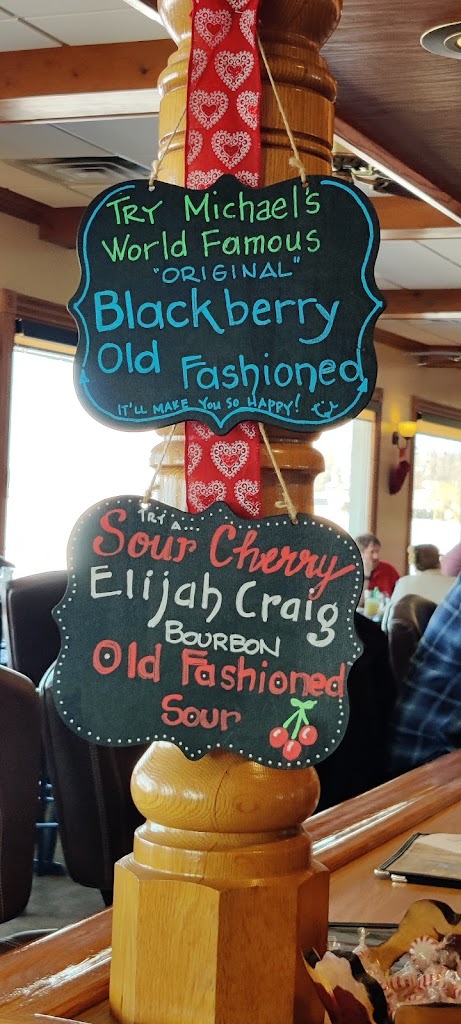 Try Michael's
World Famous
"ORIGINAL"
Blackberry
Old Fashioned
IT'LL MAKE YOU SO HAPPY!
TRY A...
Sour Cherry
Elijah Craig
BOURBON
Old Fashioned
Sour